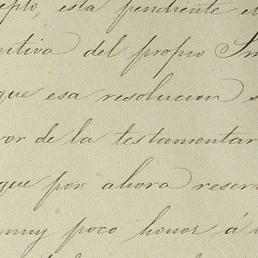 epto, está pendiente e
itiva del propio In
que esa resolucion s
vor de la testamentar
que por ahora reser
muy poco honor á l